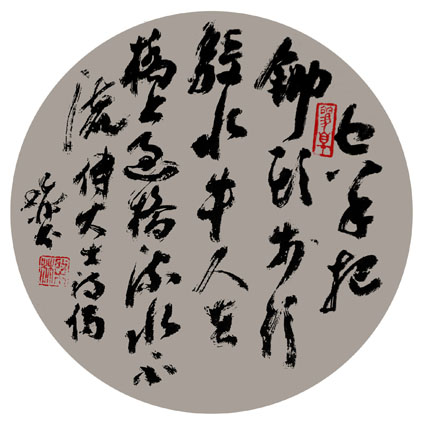 空手把
鋤頭步行
騎水牛人從
橋上過橋流水不
流傅大士詩偈